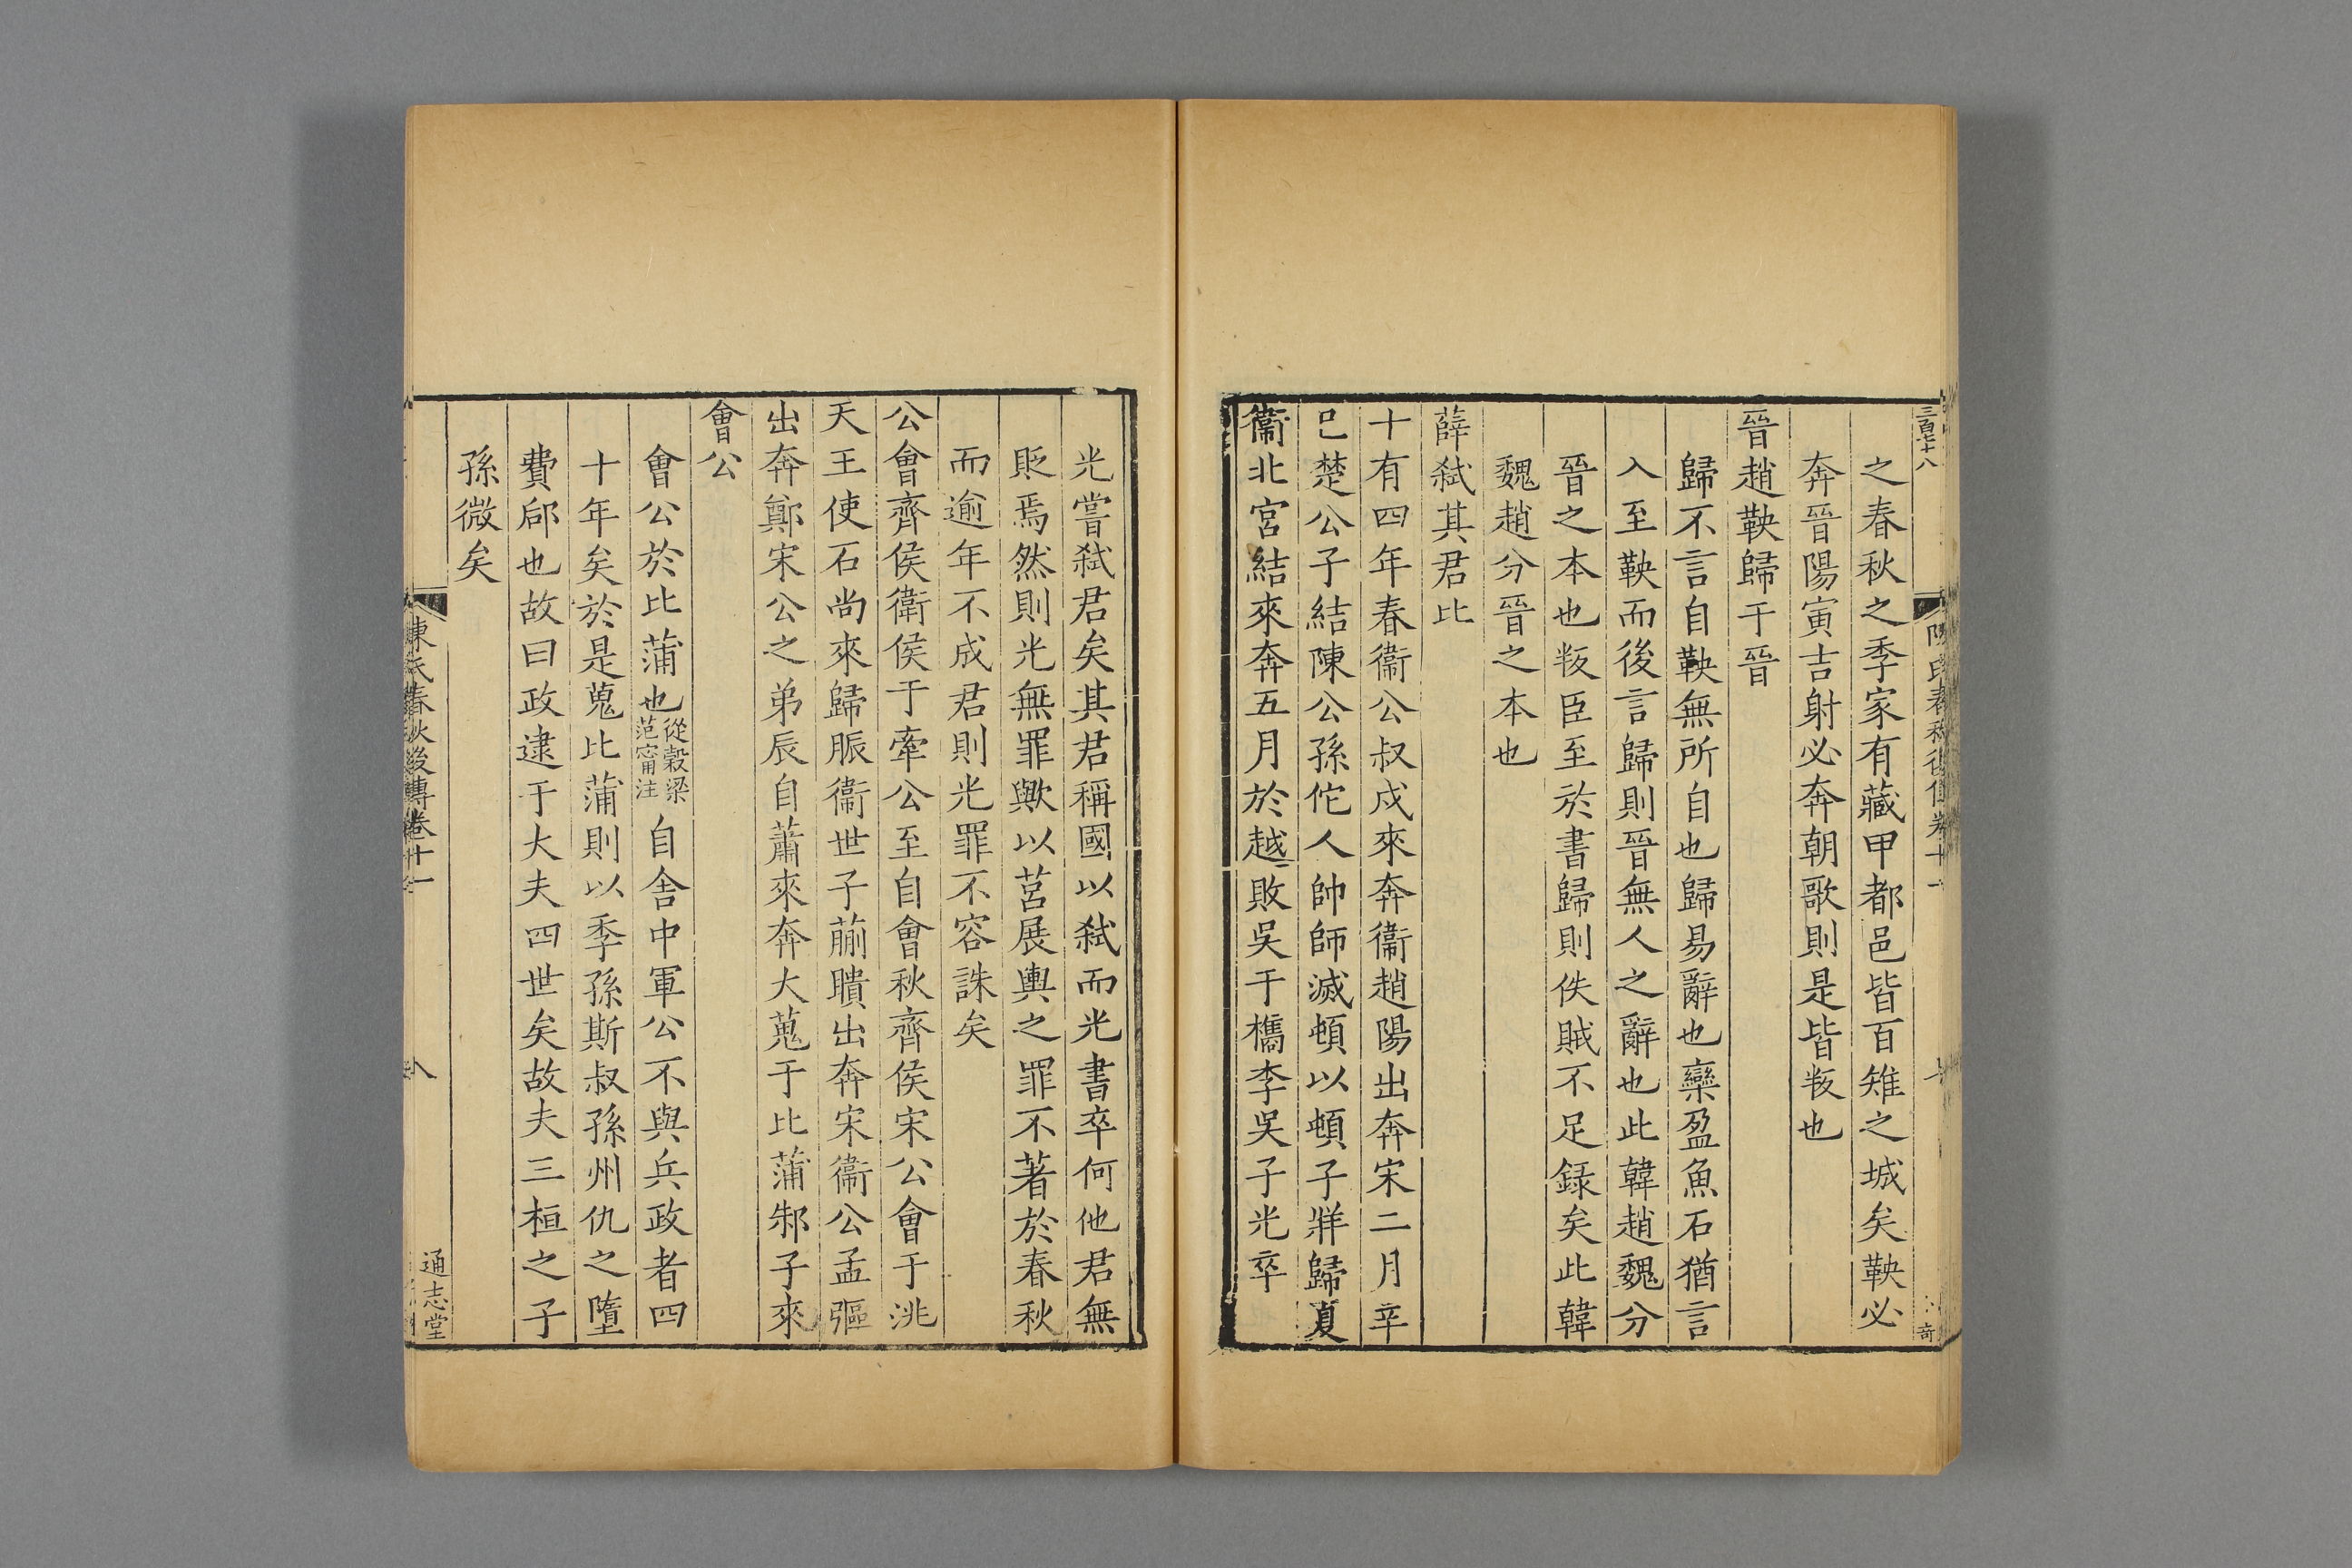 三百七十八
之春秋之季家有藏甲都邑皆百雉之城矣鞅必
奔晉陽寅吉射必奔朝歌則是皆叛也
晉趙鞅歸于晉
歸不言自鞅無所自也歸易辭也欒盈魚石猶言
入至鞅而後言歸則晉無人之辭也此韓趙魏分
晉之本也叛臣至於書歸則佚賊不足録矣此韓
魏趙分晉之本也
薛弑其君比
十有四年春衞公叔戍來奔衞趙陽出奔宋二月辛
巳楚公子結陳公孫佗人帥師滅頓以頓子牂歸夏
衞北宮結來奔五月於越敗吳于檇李吳子光卒
光嘗弑君矣其君稱國以弑而光書卒何他君無
貶焉然則光無罪歟以莒展輿之罪不著於春秋
而逾年不成君則光罪不容誅矣
公會齊侯衛侯于牽公至自會秋齊侯宋公會于洮
天王使石尚來歸脤衞世子蒯聵出奔宋衞公孟彄
出奔鄭宋公之弟辰自蕭來奔大蒐于比蒲邾子來
會公
會公於比蒲也從穀梁范甯注自舍中軍公不與兵政者四
十年矣於是蒐比蒲則以季孫斯叔孫州仇之墮
費郈也故曰政逮于大夫四世矣故夫三桓之子
孫微矣
陳氏春秋後傳卷十一
八
通志堂